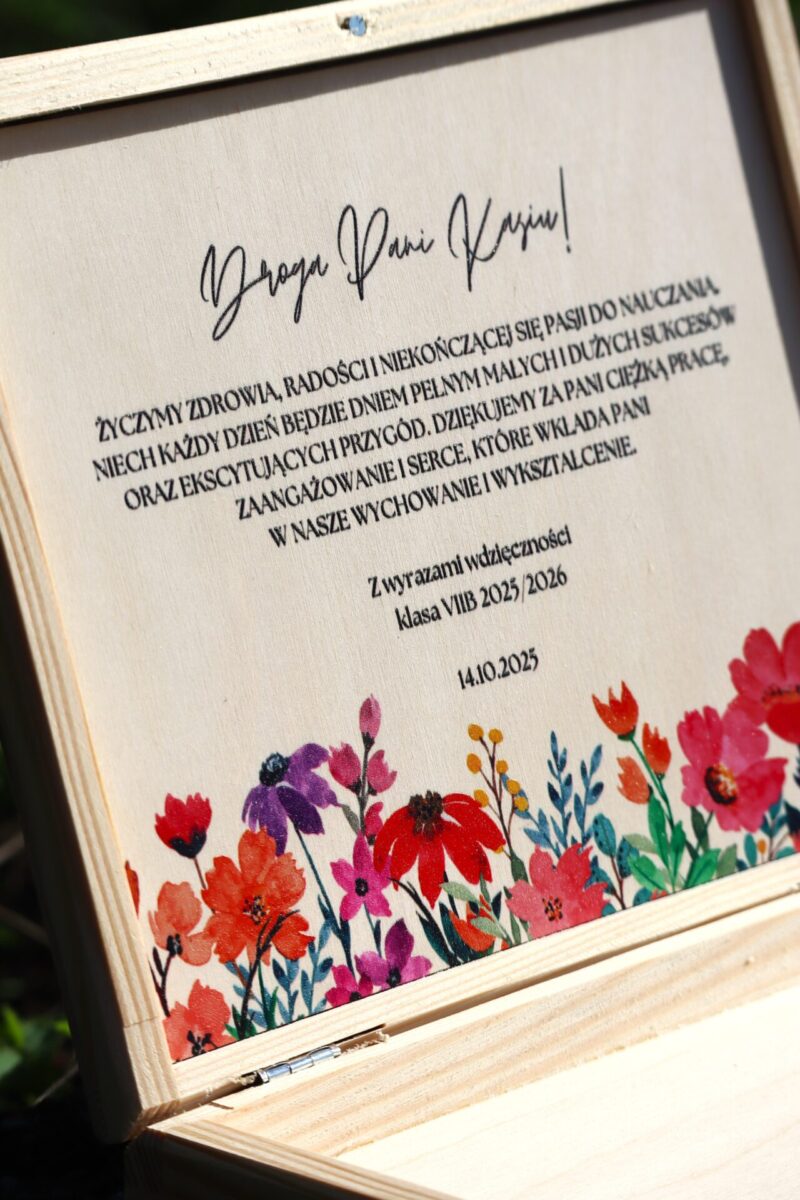 Droga Pani Kasiu!
ŻYCZYMY ZDROWIA, RADOŚCI I NIEKOŃCZĄCEJ SIĘ PASJI DO NAUCZANIA.
NIECH KAŻDY DZIEŃ BĘDZIE DNIEM PEŁNYM MAŁYCH I DUŻYCH SUKCESÓW
ORAZ EKSCYTUJĄCYCH PRZYGÓD. DZIĘKUJEMY ZA PANI CIĘŻKĄ PRACĘ,
ZAANGAŻOWANIE I SERCE, KTÓRE WKŁADA PANI
W NASZE WYCHOWANIE I WYKSZTAŁCENIE.
Z wyrazami wdzięczności
klasa VIIB 2025/2026
14.10.2025